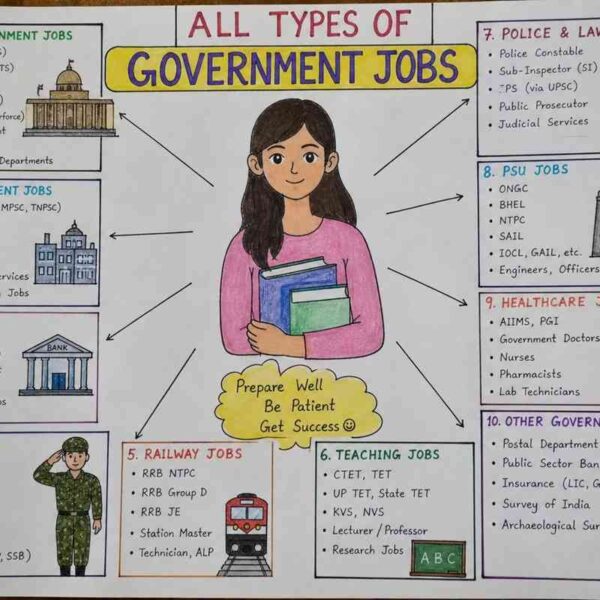 ALL TYPES OF
GOVERNMENT JOBS
NMENT JOBS
S)
TS)
force)
t
Departments
ENT JOBS
MPSC, TNPSC)
ervices
Jobs
BANK
t
os
, SSB)
5. RAILWAY JOBS
• RRB NTPC
• RRB Group D
• RRB JE
• Station Master
• Technician, ALP
Prepare Well
Be Patient
Get Success ☺
6. TEACHING JOBS
• CTET, TET
• UP TET, State TET
• KVS, NVS
• Lecturer / Professor
• Research Jobs
A B C
7. POLICE & LAW
• Police Constable
• Sub-Inspector (SI)
• IPS (via UPSC)
• Public Prosecutor
• Judicial Services
8. PSU JOBS
• ONGC
• BHEL
• NTPC
• SAIL
• IOCL, GAIL, etc.
• Engineers, Officers
9. HEALTHCARE J
• AIIMS, PGI
• Government Doctors
• Nurses
• Pharmacists
• Lab Technicians
10. OTHER GOVERN
• Postal Department
• Public Sector Ban
• Insurance (LIC, G
• Survey of India
• Archaeological Sur